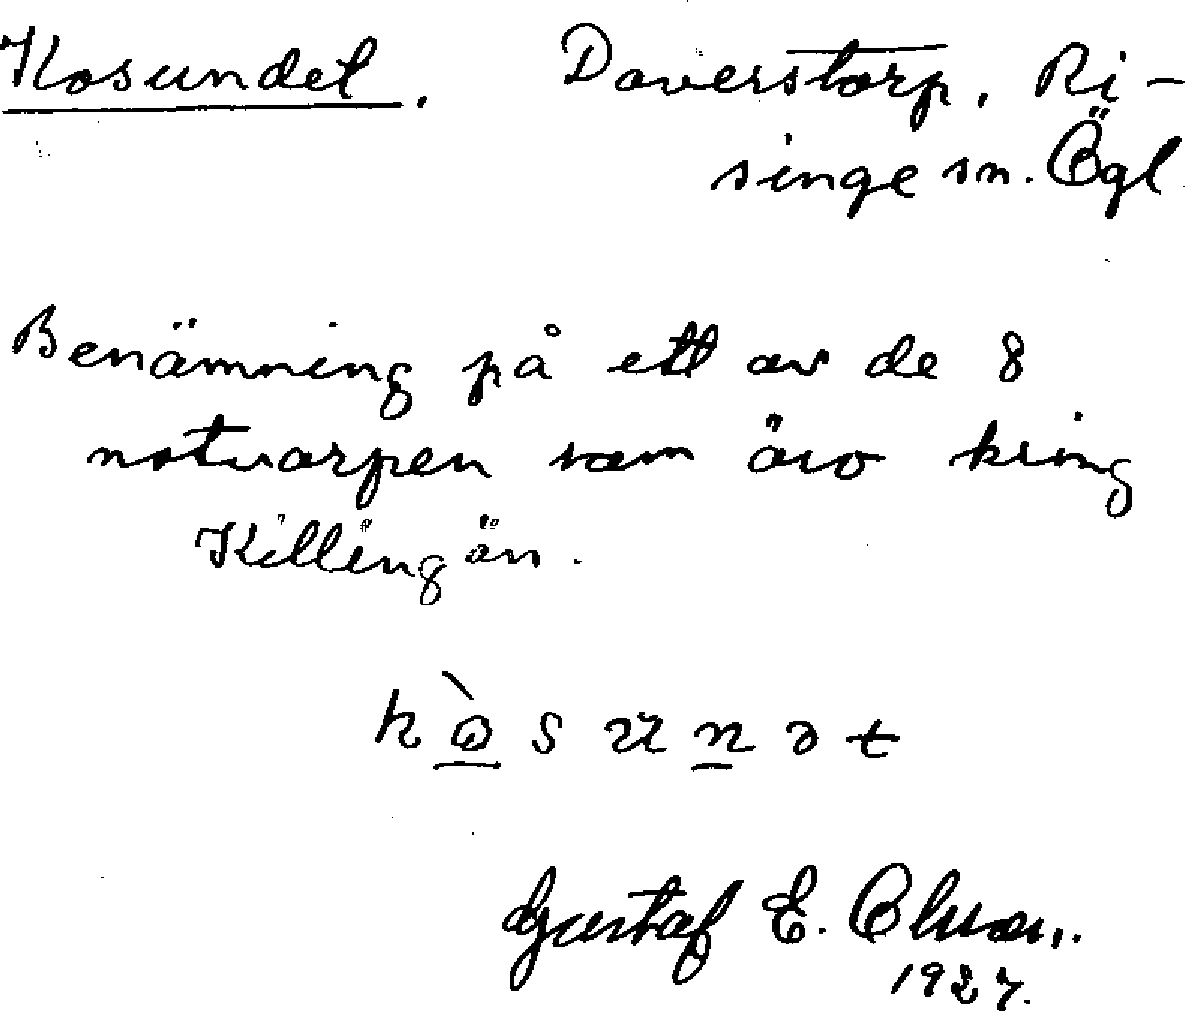 Kosundet. Daverstorp, Ri-
singe sn. Ögl
Benämning på ett av de 8
notvarpen som äro kring
Killingön.
Gustaf E.
1927.